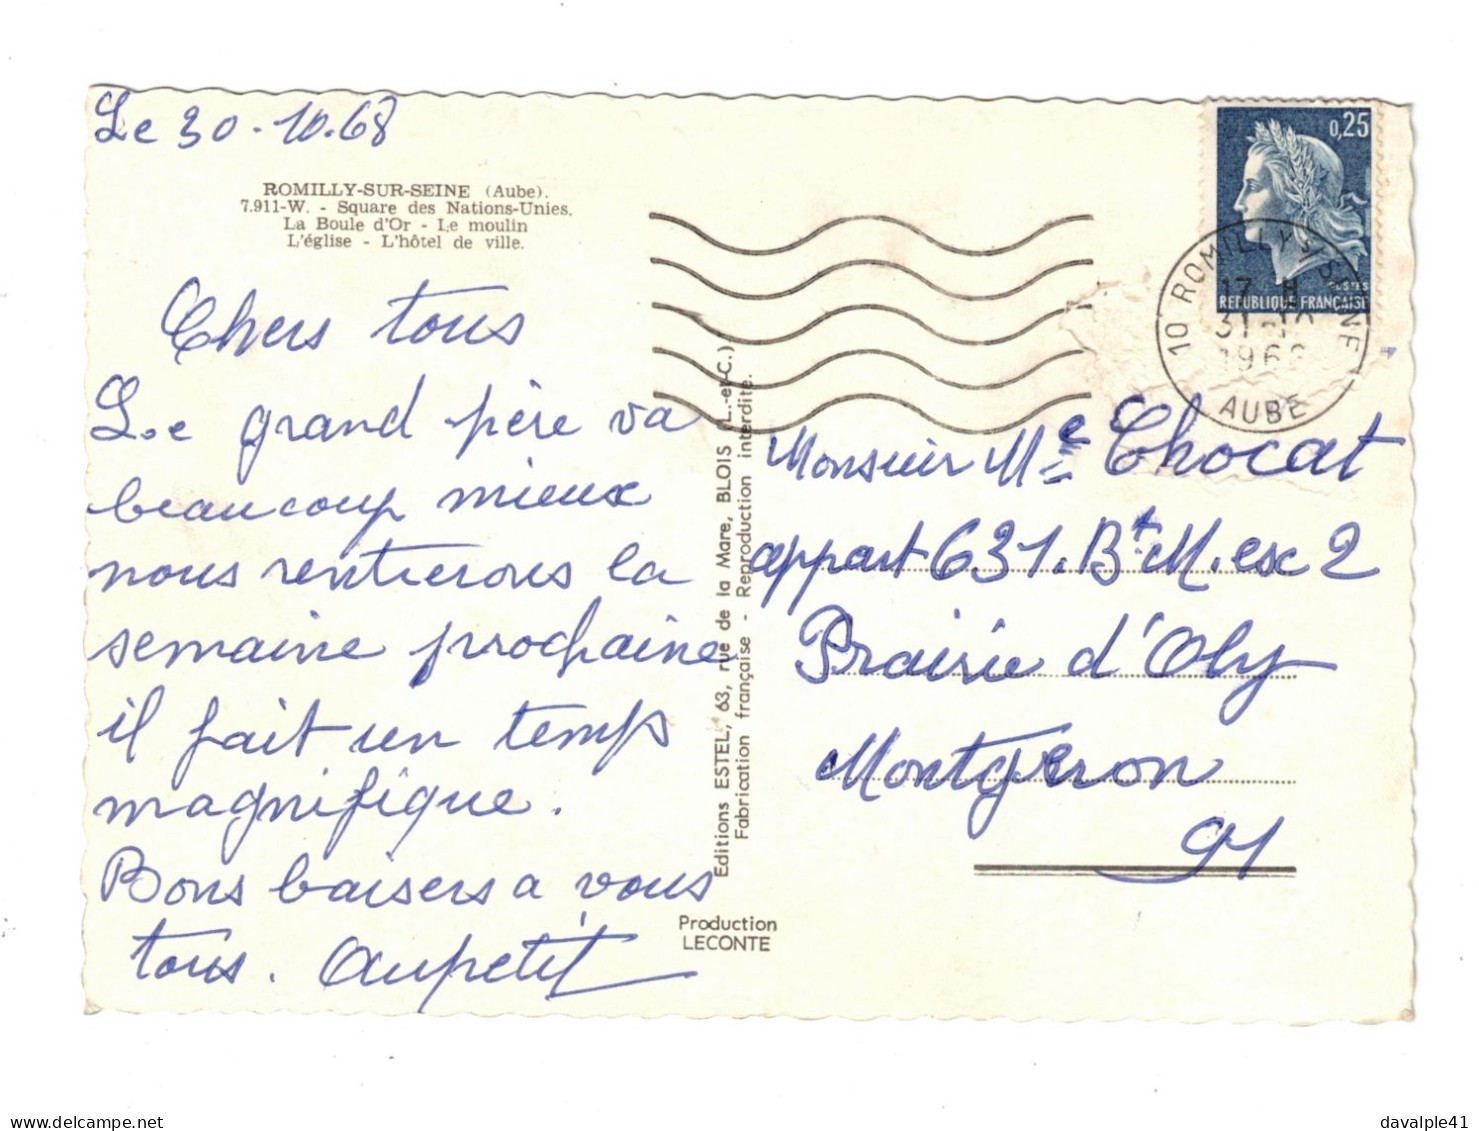 Le 30-10.68
ROMILLY-SUR-SEINE (Aube).
7.911-W. - Square des Nations-Unies.
La Boule d'Or - Le moulin
L'église - L'hôtel de ville.
Chers tous
Le grand père va
beaucoup mieux
nous rentrerons la
semaine prochaine
il fait un temps
magnifique.
Bons baisers a vous
tous. Aupetit
Editions ESTEL, 63, rue de la Mare, BLOIS (L.-et-C.)
Fabrication française - Reproduction interdite.
Production
LECONTE
0,25
POSTES
REPUBLIQUE FRANÇAISE
10 ROMILLY S/SEINE
17 H
31-10
196
AUBE
Monsieur Me Chocat
appart 631. Bt M. esc 2
Prairie d'Oly
Montgeron
91
davalple41
delcampe.net